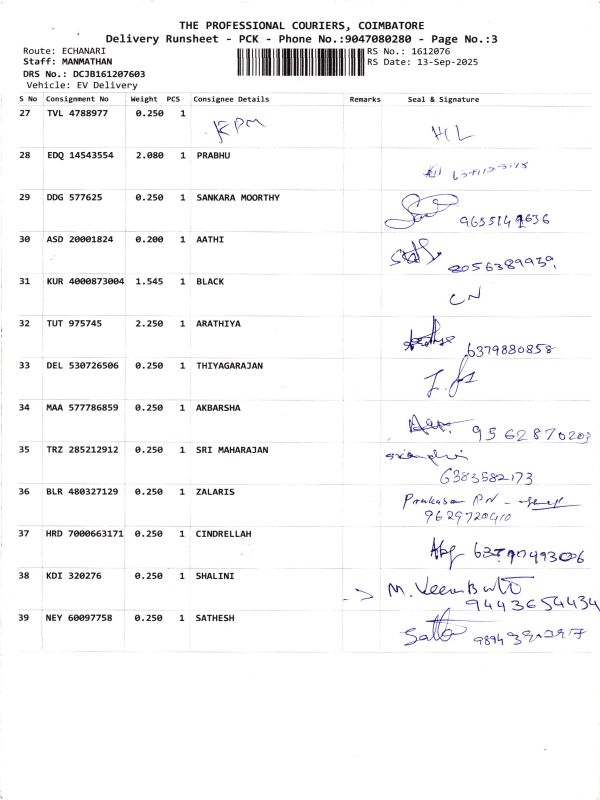 THE PROFESSIONAL COURIERS, COIMBATORE
Delivery Runsheet - PCK - Phone No.:9047080280 - Page No.:3
Route: ECHANARI RS No.: 1612076
Staff: MANMATHAN RS Date: 13-Sep-2025
DRS No.: DCJB161207603
Vehicle: EV Delivery
S No Consignment No Weight PCS Consignee Details Remarks Seal & Signature
27 TVL 4788977 0.250 1 KPM HL
28 EDQ 14543554 2.080 1 PRABHU
29 DDG 577625 0.250 1 SANKARA MOORTHY
30 ASD 20001824 0.200 1 AATHI 8056389939
31 KUR 4000873004 1.545 1 BLACK CN
32 TUT 975745 2.250 1 ARATHIYA 6379880858
33 DEL 530726506 0.250 1 THIYAGARAJAN
34 MAA 577786859 0.250 1 AKBARSHA 9562870203
35 TRZ 285212912 0.250 1 SRI MAHARAJAN 6383582173
36 BLR 480327129 0.250 1 ZALARIS Prakasan PN
9629720410
37 HRD 7000663171 0.250 1 CINDRELLAH
38 KDI 320276 0.250 1 SHALINI M.
9443654434
39 NEY 60097758 0.250 1 SATHESH